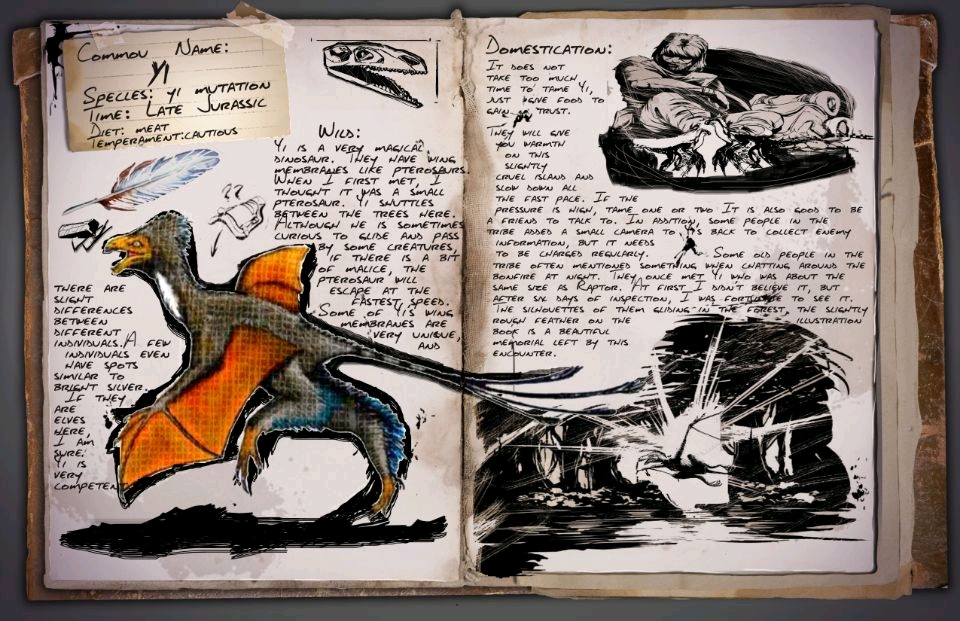 Common Name:
Yi
Species: Yi mutation
Time: Late Jurassic
Diet: meat
Temperament: cautious
??
Wild:
Yi is a very magical
dinosaur. They have wing
membranes like pterosaurs.
When I first met, I
thought it was a small
pterosaur. Yi shuttles
between the trees here.
Although he is sometimes
curious to glide and pass
by some creatures,
if there is a bit
of malice, the
pterosaur will
escape at the
fastest speed.
Some of Yi's wing
membranes are
very unique,
and
there are
slight
differences
between
different
individuals. A few
individuals even
have spots
similar to
bright silver.
If they
are
elves
here,
I am
sure,
Yi is
very
competent
Domestication:
It does not
take too much
time to tame Yi,
just give food to
gain trust.
They will give
you warmth
on this
slightly
cruel island and
slow down all
the fast pace. If the
pressure is high, tame one or two It is also good to be
a friend to talk to. In addition, some people in the
tribe added a small camera to Yi's back to collect enemy
information, but it needs
to be charged regularly.
Some old people in the
tribe often mentioned something when chatting around the
bonfire at night. They once met Yi who was about the
same size as Raptor. At first I didn't believe it, but
after six days of inspection, I was fortunate to see it.
The silhouettes of them gliding in the forest, the slightly
rough feather on the illustration
book is a beautiful
memorial left by this
encounter.